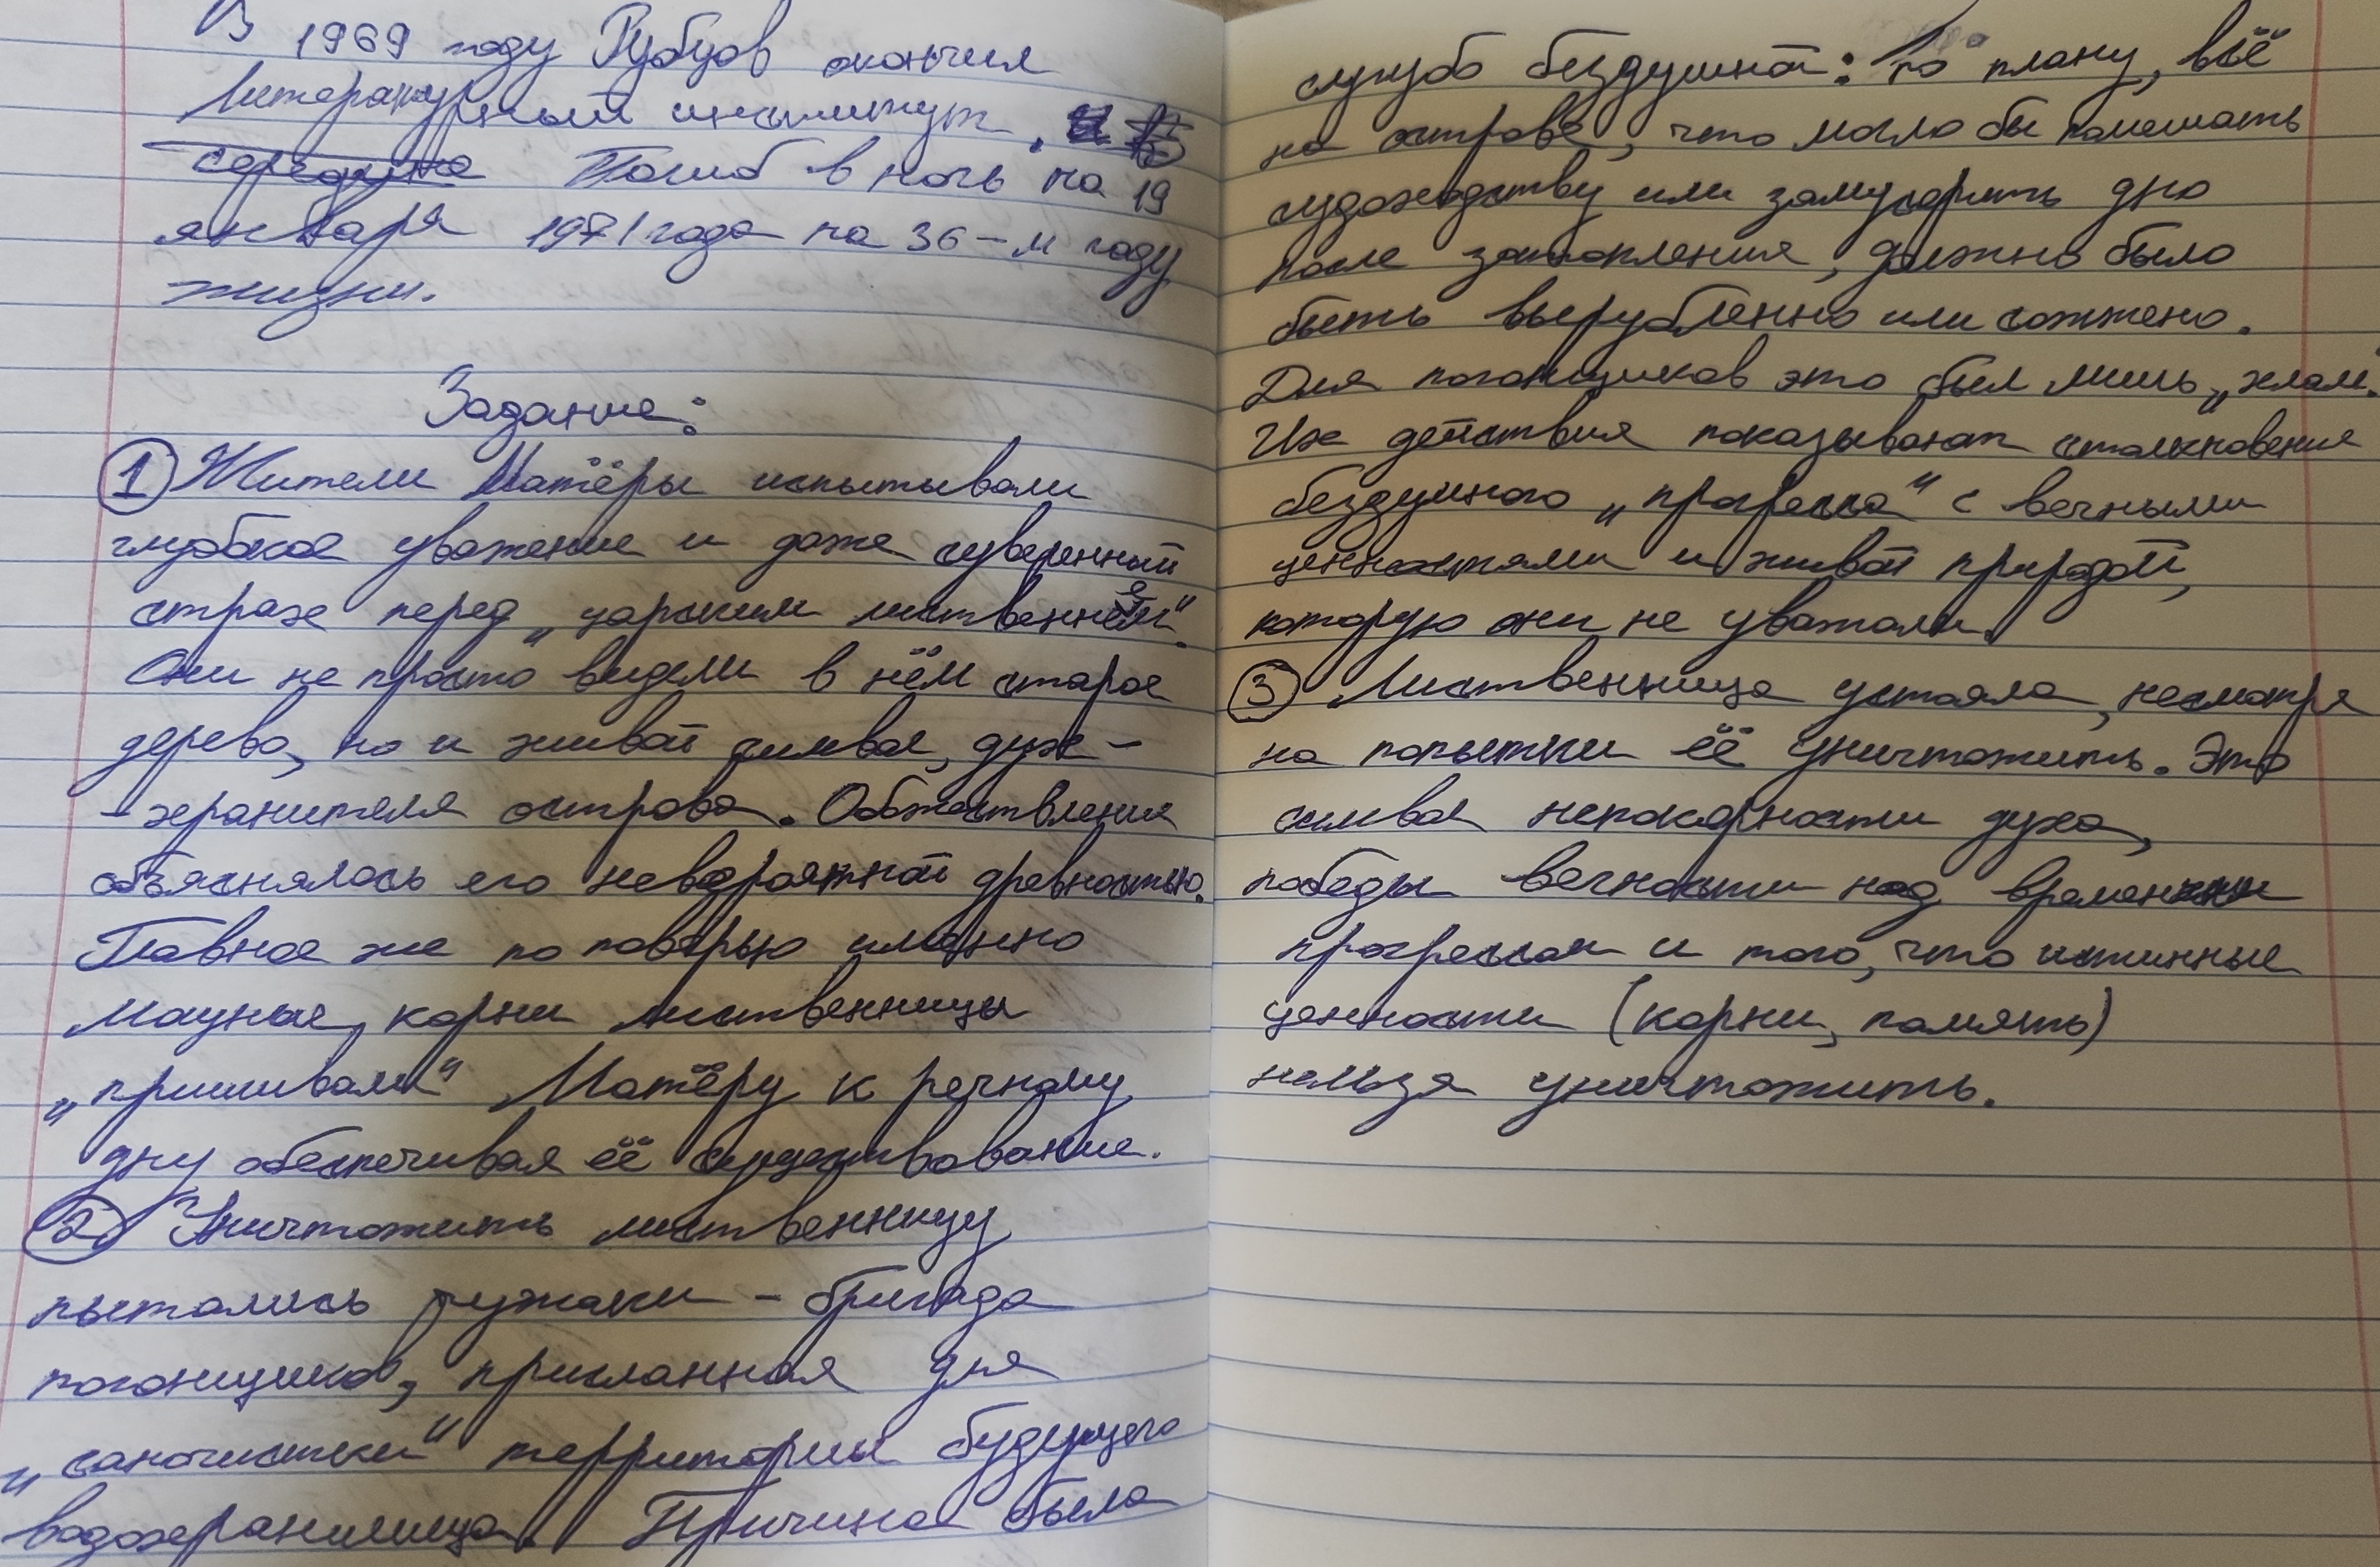 В 1969 году Рубцов окончил
Литературный институт.
середина Погиб в ночь на 19
января 1971 года на 36-м году
жизни.
Задание:
1 Жители Матёры испытывали
глубокое уважение и даже суеверный
страх перед „царским лиственнем".
Они не просто видели в нём старое
дерево, но и живой символ, дух-
-хранителя острова. Обожествление
объяснялось его невероятной древностью.
Главное же по поверью именно
мощные, корни лиственницы
„пришивали" Матёру к речному
дну обеспечивая её существование.
2 Уничтожить лиственницу
пытались чужаки - бригада
пожогщиков, присланная для
„саночистки" территории будущего
водохранилища. Причина была
сугубо бездушной: По плану, всё
на острове, что могло бы помешать
судоходству или замусорить дно
после затопления, должно было
быть вырубленно или сожжено.
Для пожогщиков это был лишь „хлам.
Их действия показывают столкновение
бездушного „прогресса" с вечными
ценностями и живой природой,
которую они не уважали.
3 Лиственница устояла, несмотря
на попытки её уничтожить. Это
символ непокорности духа,
победы вечности над
прогрессом и того, что истинные
ценности (корни, память)
нельзя уничтожить.